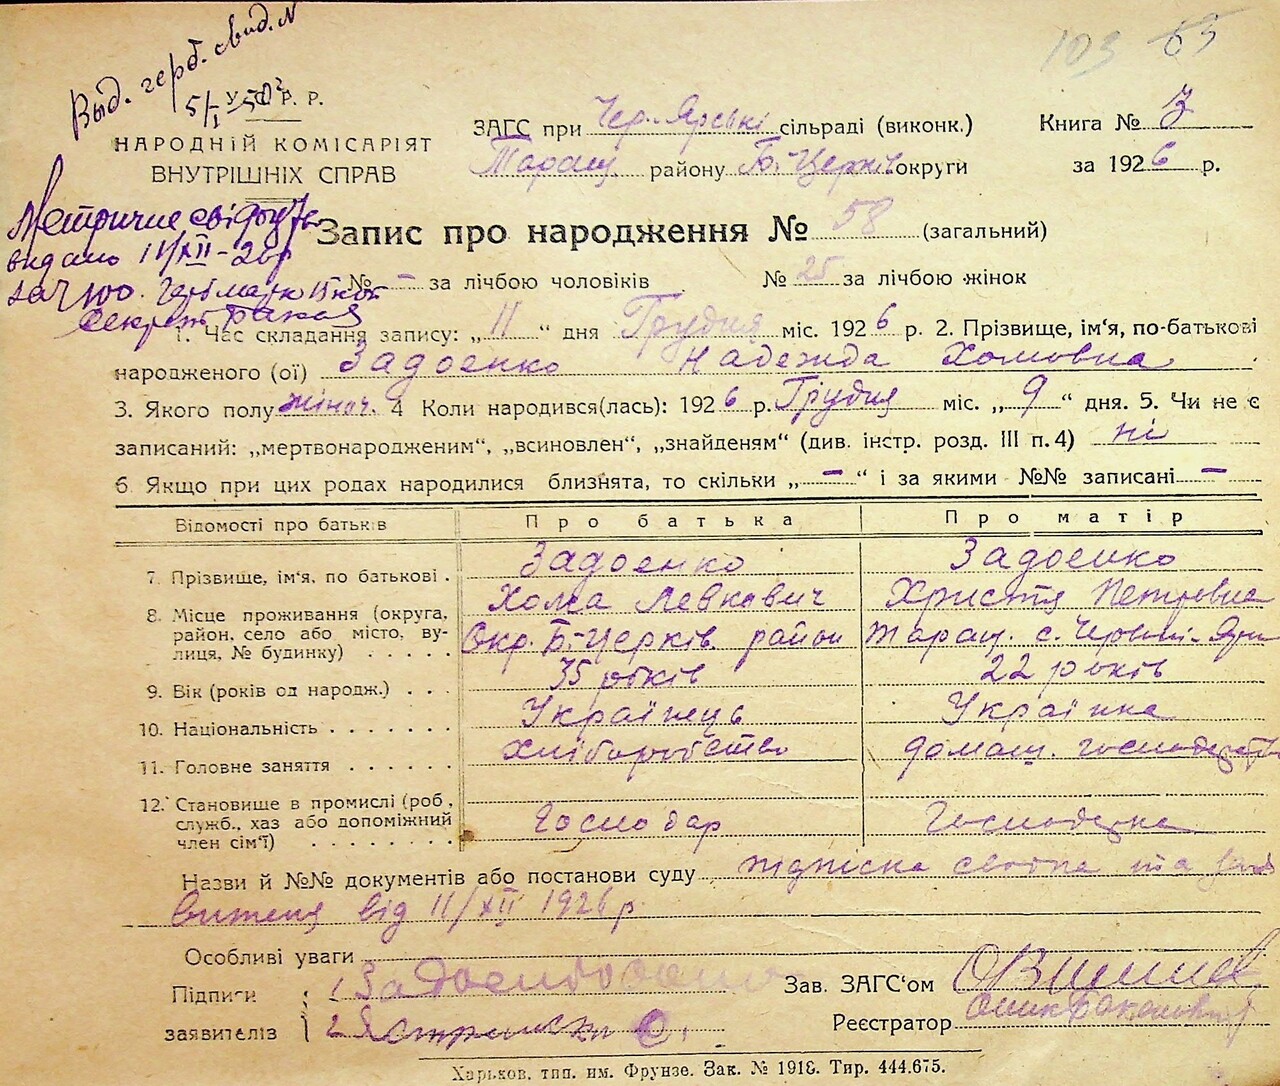 Выд. герб. свид. №
5/I 50 г
103 65
У. С. Р. Р.
НАРОДНІЙ КОМІСАРІЯТ
ВНУТРІШНІХ СПРАВ
ЗАГС при Чер.-Ярські сільраді (виконк.)
Таращ. району Б.-Церків округи
Книга № 3
за 1926 р.
Метричне
видано 11/XII-26р
за № 100. Герб марк 15 коп
Секрет
Запис про народження № 58 (загальний)
№ - за лічбою чоловіків № 25 за лічбою жінок
1. Час складання запису: „11“ дня Грудня міс. 1926 р. 2. Прізвище, ім'я, по-батькові
народженого (ої) Задоенко Надежда Хомовна
3. Якого полу жіноч. 4 Коли народився(лась): 1926 р. Грудня міс. „9“ дня. 5. Чи не є
записаний: „мертвонародженим“, „всиновлен“, „знайденям“ (див. інстр. розд. III п. 4) ні
6. Якщо при цих родах народилися близнята, то скільки „-“ і за якими №№ записані -
Відомості про батьків Про батька Про матір
7. Прізвище, ім'я, по батькові . Задоенко Хома Левкович Задоенко Христя Петровна
8. Місце проживання (округа,
район, село або місто, ву-
лиця, № будинку) . . . . . Окр. Б.-Церків. район Таращ. с. Червоні-Яри
9. Вік (років од народж.) . . . 35 років 22 років
10. Національність . . . . . . . Українець Українка
11. Головне заняття . . . . . . Хліборобство домаш. господарств
12. Становище в промислі (роб.,
служб., хаз або допоміжний
член сім'ї) . . . . . . . . Господар Господарка
Назви й №№ документів або постанови суду підписка свідка та
від 11/XII 1926 р.
Особливі уваги
Підписи
заявителів
1
2
Зав. ЗАГС'ом
Реєстратор
Харьков, тип. им. Фрунзе. Зак. № 1918. Тир. 444.675.